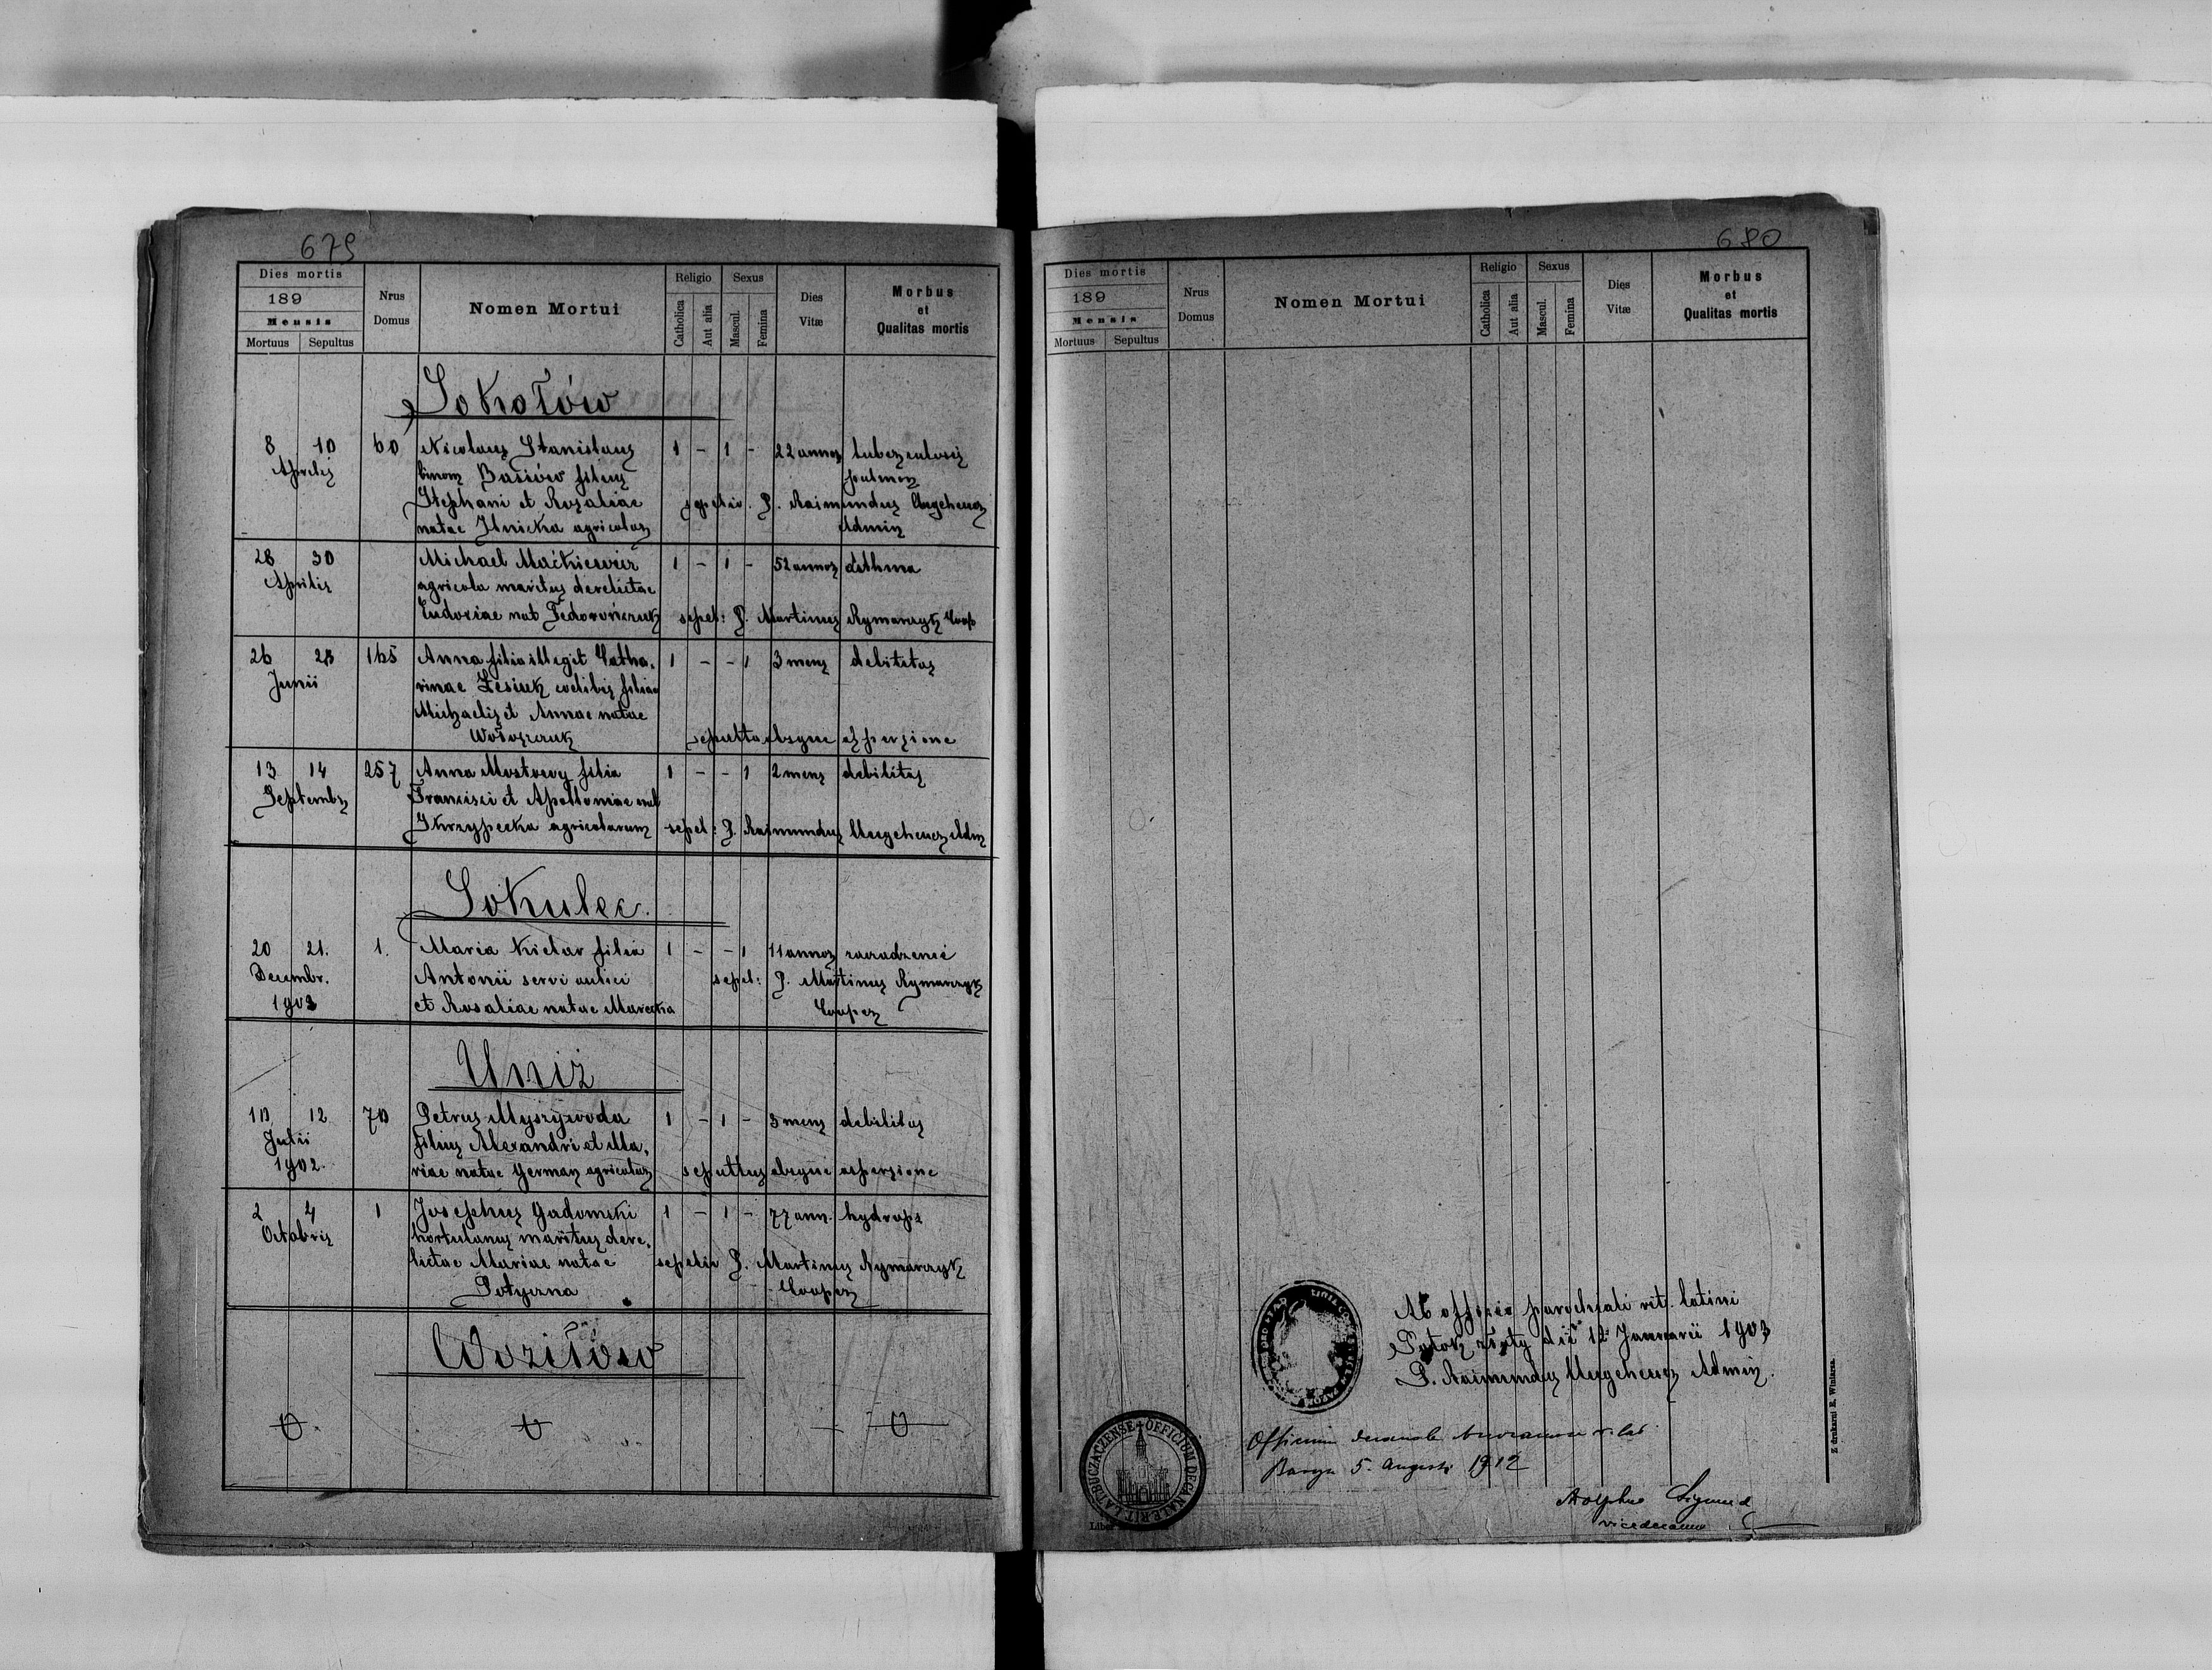 679
Dies mortis
189
Mensis
Mortuus Sepultus
Nrus Domus
Nomen Mortui
Religio
Catholica
Aut alia
Sexus
Mascul.
Femina
Dies Vitæ
Morbus et Qualitas mortis
Sokołów
8 10 60 Nicolaus Stanislaus 1 - 1 - 22 annor
Aprilis binom filius
Stephani et Rosaliae sepeliv. P. Raimundus
natae Ilnicka agricolar Admin
28 30 Michael Maćkiewicz 1 - 1 - 52 annor asthma
Aprilis agricola maritus derelictae
Eudoxiae nat Fedorończuk sepel: P. Martinus Rymarczyk Coop
26 28 165 Anna filia illegit Catha- 1 - - 1 3 mens debilitas
Junii rinae Łesiuk coelibis filiae
Michaelis et Annae natae
Wołoszczuk sepulta absque aspersione
13 14 257 Anna Mostowy filia 1 - - 1 2 mens debilitas
Septembr Francisci et Apolloniae nat
Skrzypecka agricolarum sepel: P. Raimundus Adm
Sokulec.
20 21. 1. Maria filia 1 - - 1 11 annor
Decembr. Antonii servi aulici sepel: P. Martinus Rymarczyk
1902 et Rosaliae natae Cooper
Uniż
10 12 70 Petrus Myszywoda 1 - 1 - 3 mens debilitas
Julii filius Alexandri et Ma-
1902. riae natae German agricolar sepultus absque aspersione
2 4 1 Josephus Gadomski 1 - 1 - 77 ann. hydrops
Octobris hortulanus maritus dere-
lictae Mariae natae sepeliv P. Martinus Rymarczyk
Potyczna Cooper
Woziłów
680
Dies mortis
189
Mensis
Mortuus Sepultus
Nrus Domus
Nomen Mortui
Religio
Catholica
Aut alia
Sexus
Mascul.
Femina
Dies Vitæ
Morbus et Qualitas mortis
Ab officio parochiali rit. latini
Potok złoty die 12 Januarii 1903
P. Raimundus Admin.
OFFICIUM DECANALE RIT. LAT. BUCZACZENSE
Officium decanale r. lat.
5. Augusti 1912
Adolphus
vicedecanus
Z drukarni E. Winiarza.